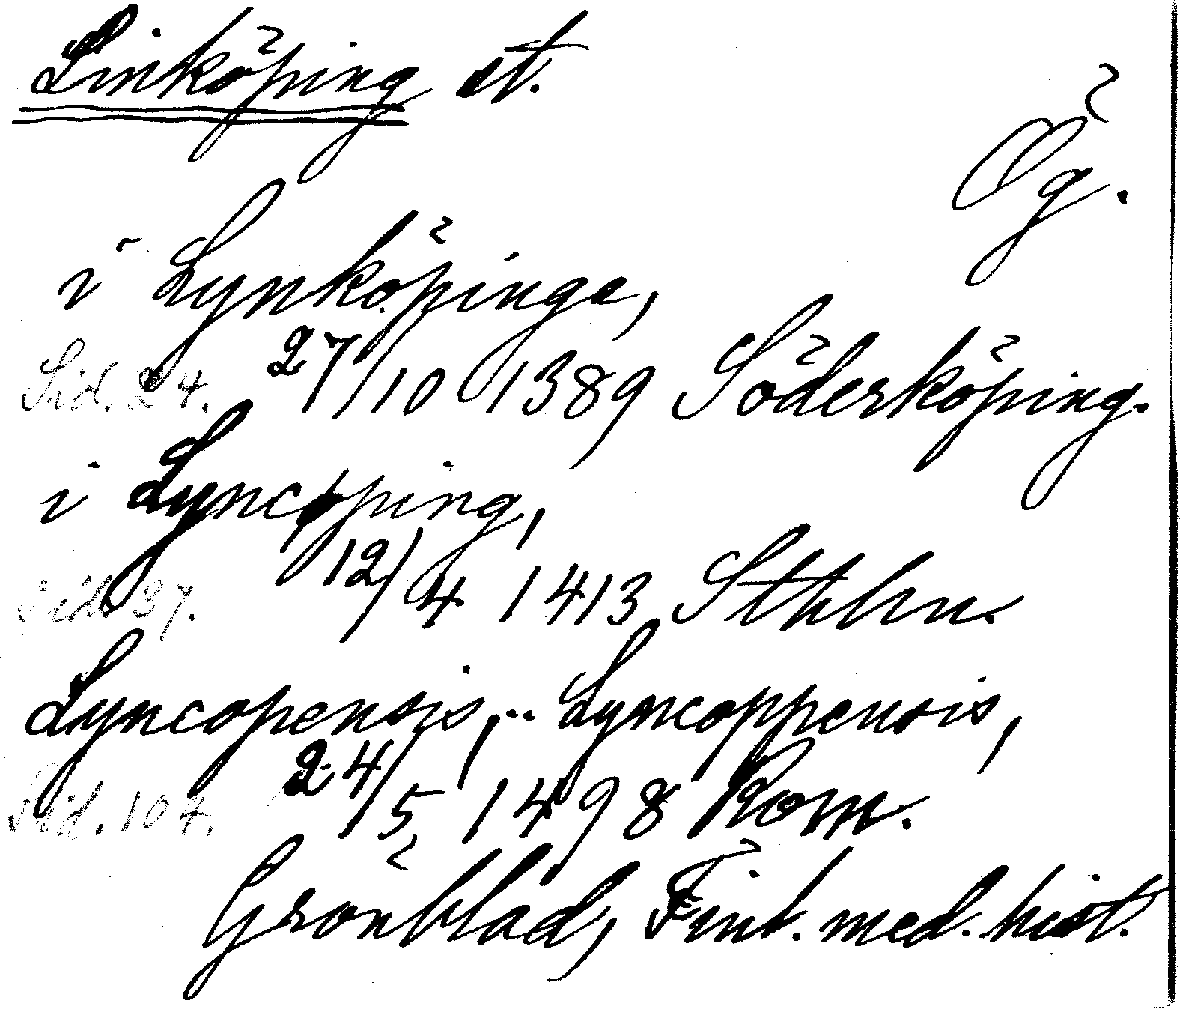 Linköping st.
Ög.
i Lynköpinge,
Sid. 24. 27/10 1389 Söderköping.
i Lyncøping,
Sid. 37. 12/4 1413 Sthlm.
Lyncopensis, .. Lyncoppensis,
Sid. 104. 24/5 1498 Rom.
Grönblad, Finl. med. hist.